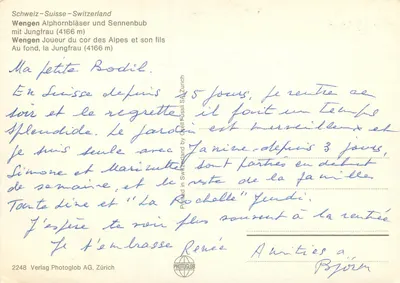 Schweiz-Suisse-Switzerland
Wengen Alphornbläser und Sennenbub
mit Jungfrau (4166 m)
Wengen Joueur du cor des Alpes et son fils
Au fond, la Jungfrau (4166 m)
Ma petite Bodil.
En Suisse depuis 15 jours, je rentre ce
soir et le regrette, il fait un temps
splendide. Le jardin est merveilleux et
je suis seule avec Janine depuis 3 jours,
Simone et Marinette sont parties en début
de semaine, et le reste de la familles
Tante Line et "La Rochelle" Jeudi.
J'espère te voir plus souvent à la rentrée
Je t'embrasse Renée
Amities a
Björn
2248 Verlag Photoglob AG, Zürich